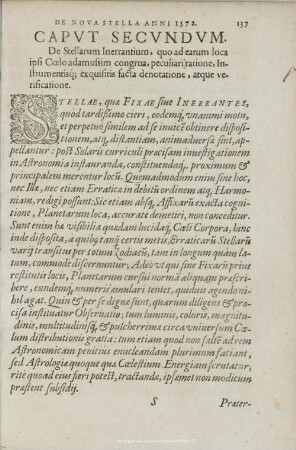 DE NOVA STELLA ANNI 1572. 137
CAPVT SECVNDVM.
De Stellarum Inerrantium, quo ad earum loca
ipsi Cœlo adamussim congrua, peculiari ratione, In-
strumentisq́; exquisitis facta denotatione, atque ve-
rificatione.
STELLAE, quæ FIXAE siue INERRANTES,
quod tardißimo cieri, eodemq́; vnanimi motu,
et perpetuò similem ad se inuicẽ obtinere dispositi-
tionem, atq́; distantiam, animaduersæ sint, ap-
pellantur: post Solaris curriculi præcisam inuestigationem
in Astronomia instauranda, constituendaq́;, proximum &
principalem merentur locũ. Quemadmodum enim sine hoc,
nec Illæ, nec etiam Erraticæ in debitũ ordinem atq́; Har-
moniam, redigi possunt: Sic etiam absq́; Affixarũ exacta cogni-
tione, Planetarum loca, accuratè demetiri, non conceditur.
Sunt enim hæ visibilia quædam lucidaq́; Cœli Corpora, hinc
inde disposita, a quibq́ tanq̃ certis metis, Erraticarũ Stellarũ
varij transitus per totum Zodiacũ, tam in longum quàm la-
tum, commodè discernuntur; Adeò vt qui sine Fixarũ prius
restitutis locis, Planetarum cursui normã aliquam præscri-
bere, eundemq́; numeris annulari tentet, quiduis agendo ni-
hil agat. Quin & per se digna sunt, quarum diligens & præ-
cisa instituatur Obseruatio; tum luminis, coloris, magnitu-
dinis, multitudinisq́;, & pulcherrimæ circa vniuersum Cœ-
lum distributionis gratia: tum etiam quod non saltẽ ad rem
Astronomicam penitius enucleandam plurimum faciant,
sed Astrologiæ quoque qua Cœlestium Energiam scrutatur,
ritè quoad eius fieri potest, tractandæ, ipsæmet non modicum
præstent subsidij.
S Præter-